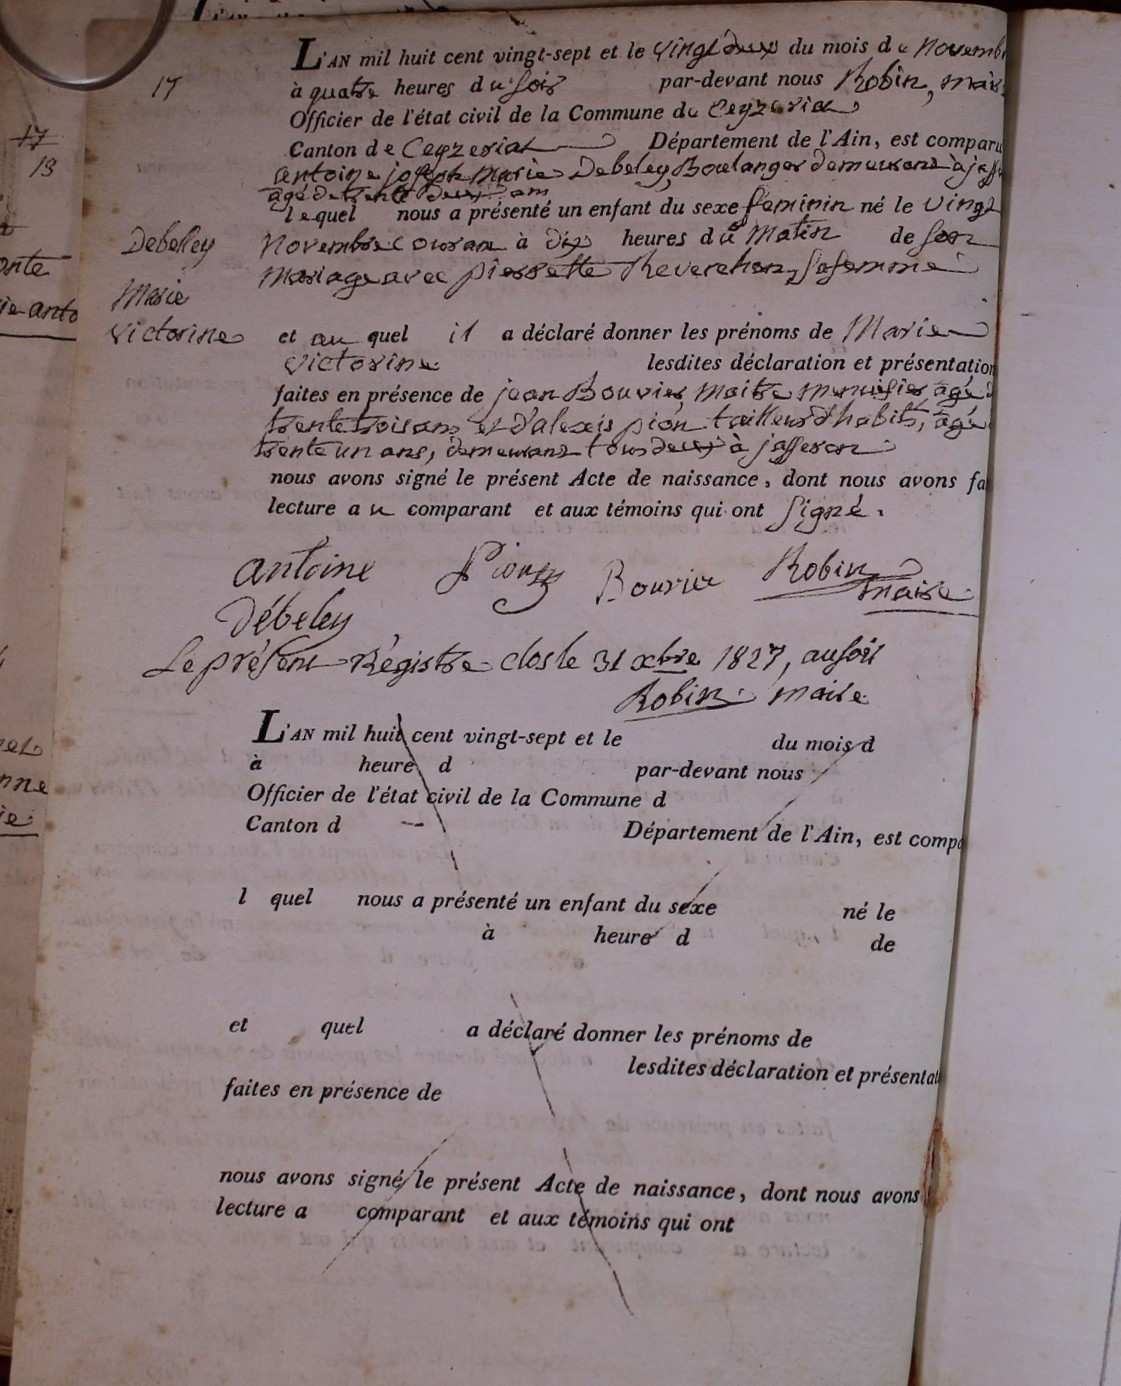 17
L'AN mil huit cent vingt-sept et le vingt deux du mois de Novemb
à quatre heures du soir par-devant nous Robin, mair
Officier de l'état civil de la Commune de Ceyzeriat
Canton de Ceyzeriat Département de l'Ain, est comparu
antoine joseph Marie Debeley, Boulanger demeurant à jass
agé de trente deux ans
lequel nous a présenté un enfant du sexe feminin né le vingt
Novembre Courant à dix heures du Matin de son
Mariage avec pierrette Reverchon, sa femme
et au quel il a déclaré donner les prénoms de Marie
Victorine lesdites déclaration et présentation
faites en présence de jean Bouvier, Maitre menuisier, agé d
trente trois ans et d'alexis pion tailleur d'habits, agé
trente un ans, demeurant tous deux à jasseron
nous avons signé le présent Acte de naissance, dont nous avons fa
lecture au comparant et aux témoins qui ont signé.
Debelley
Marie
Victorine
antoine Debeley
Pion
Bouvier
Robin maire
Le présent Régistre clos le 31 xbre 1827, au soir
Robin maire
L'AN mil huit cent vingt-sept et le du mois d
à heure d par-devant nous
Officier de l'état civil de la Commune d
Canton d Département de l'Ain, est compa
l quel nous a présenté un enfant du sexe né le
à heure d de
et quel a déclaré donner les prénoms de
lesdites déclaration et présentat
faites en présence de
nous avons signé le présent Acte de naissance, dont nous avons
lecture a comparant et aux témoins qui ont
17
13
onte
ie anto
nne
ie